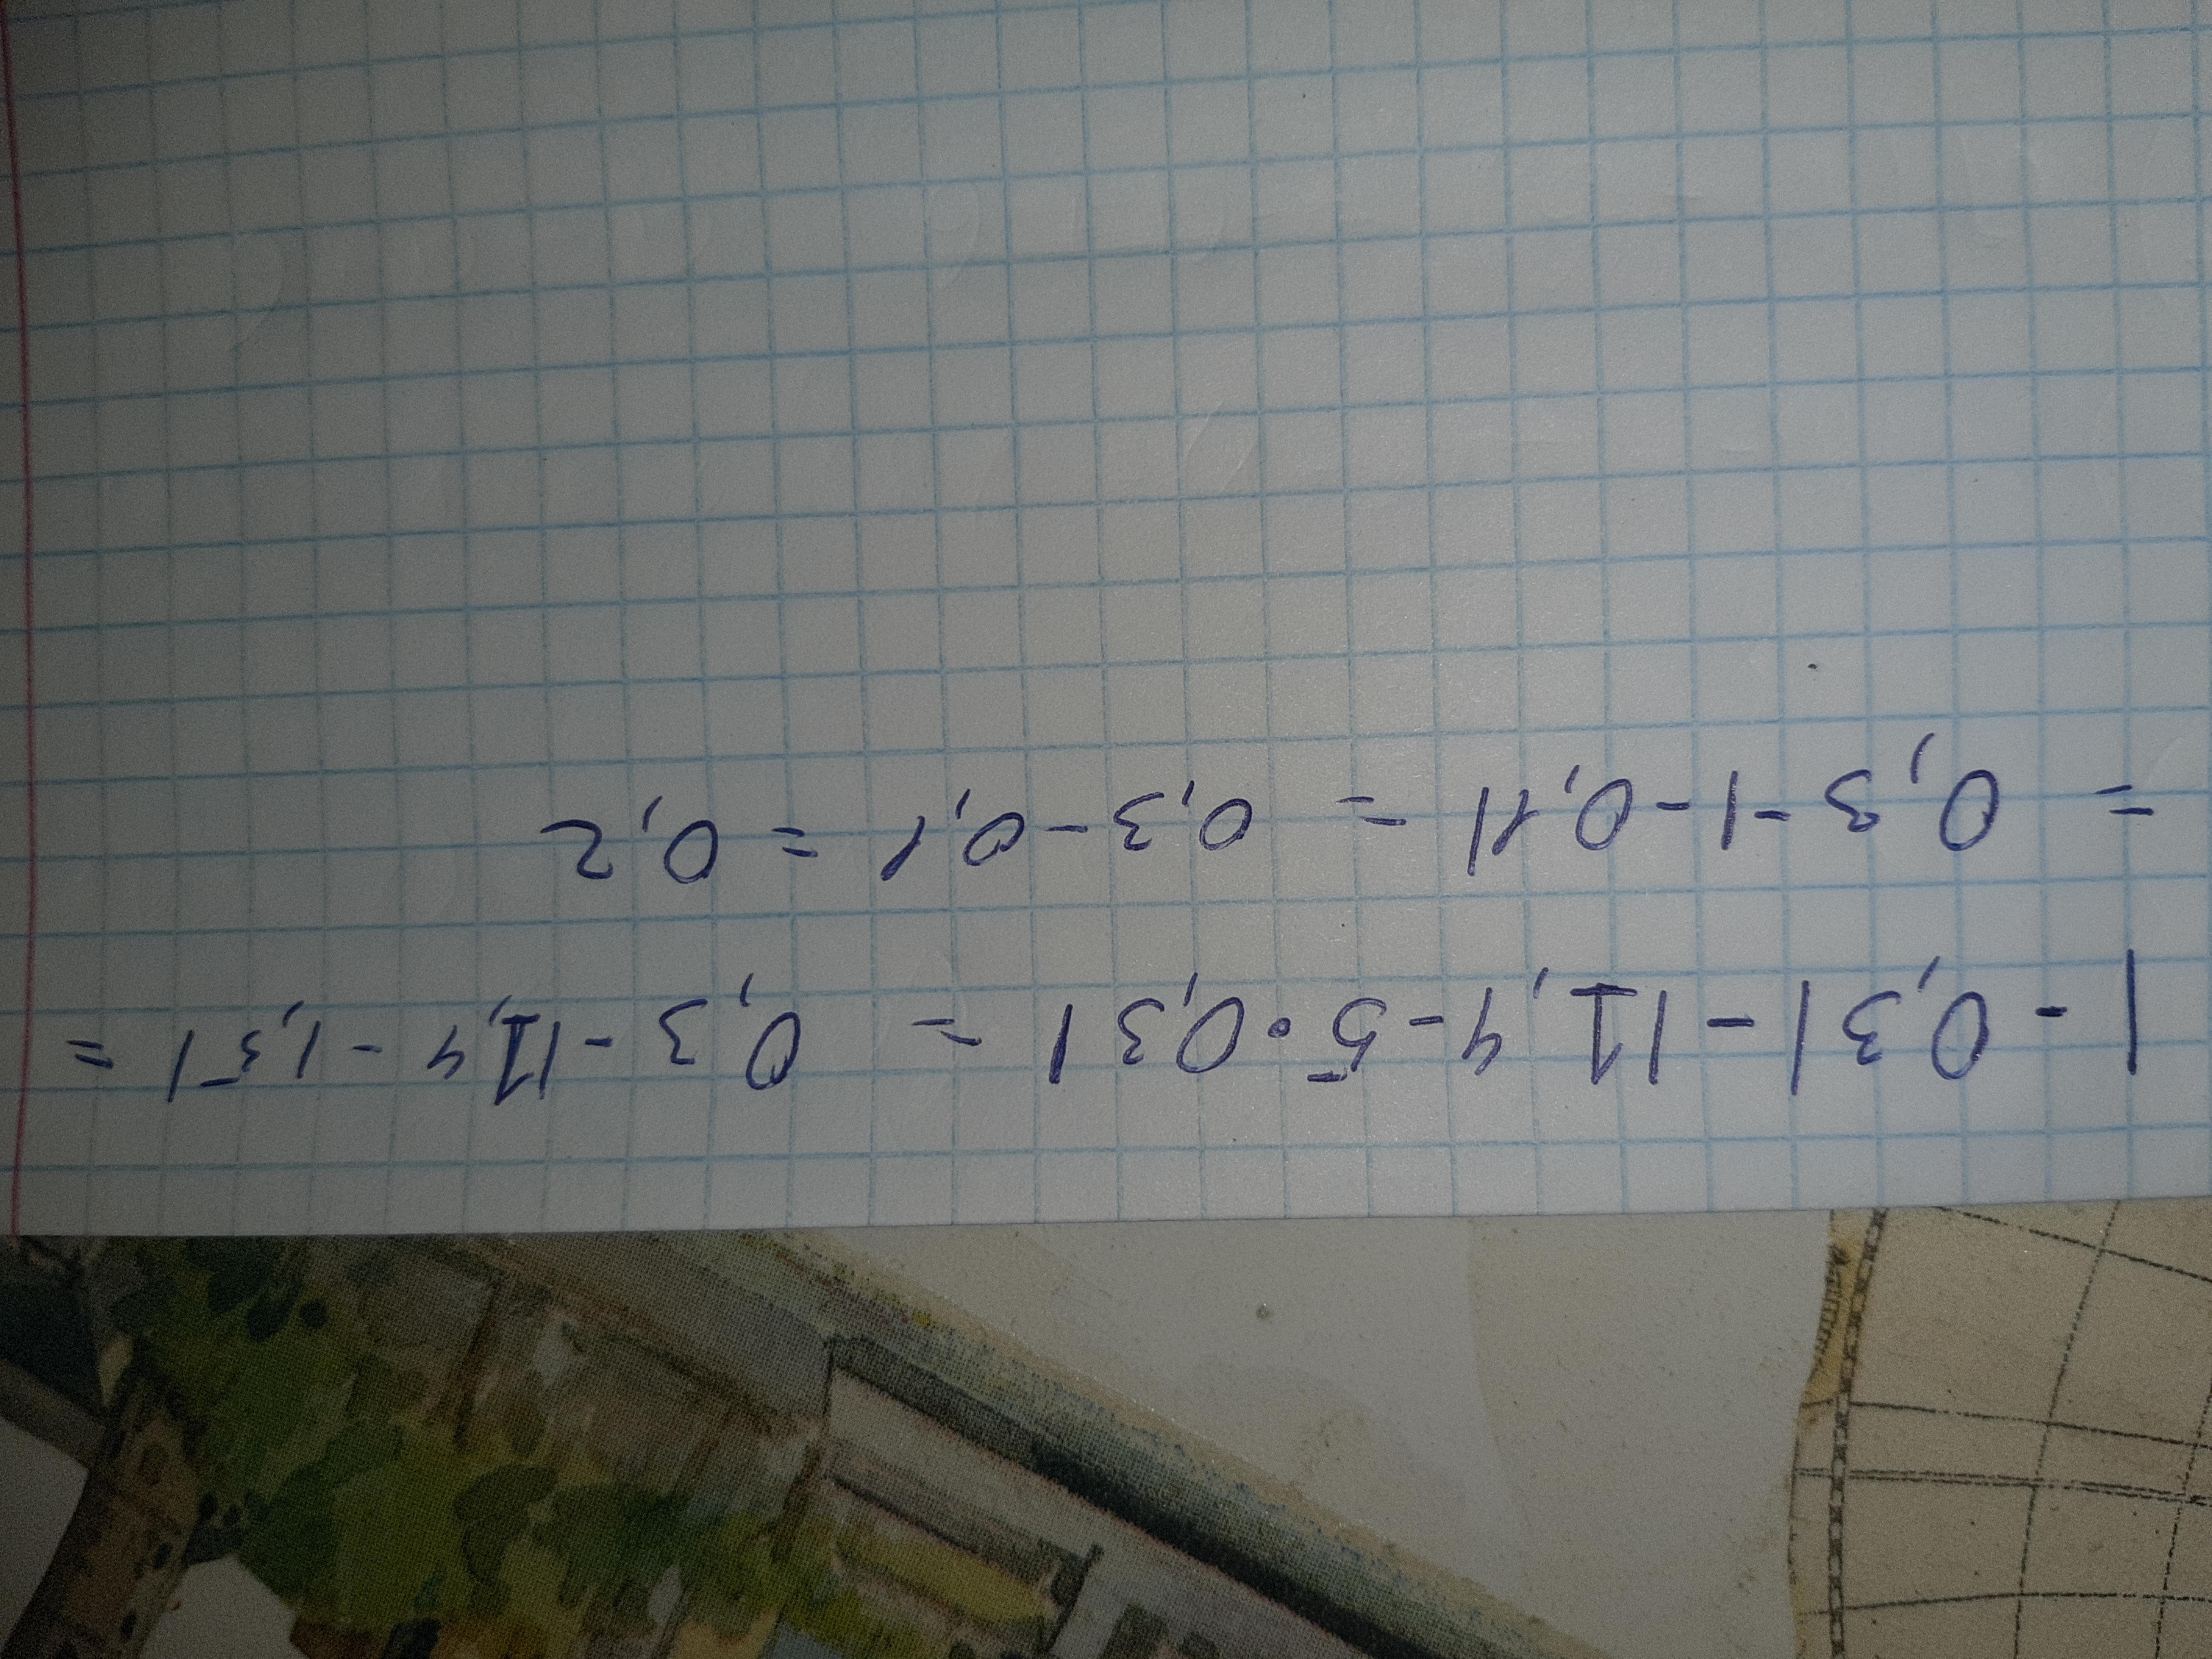 |-0,3|-|1,4-5·0,3| = 0,3-|1,4-1,5| =
= 0,3-|-0,1| = 0,3-0,1 = 0,2